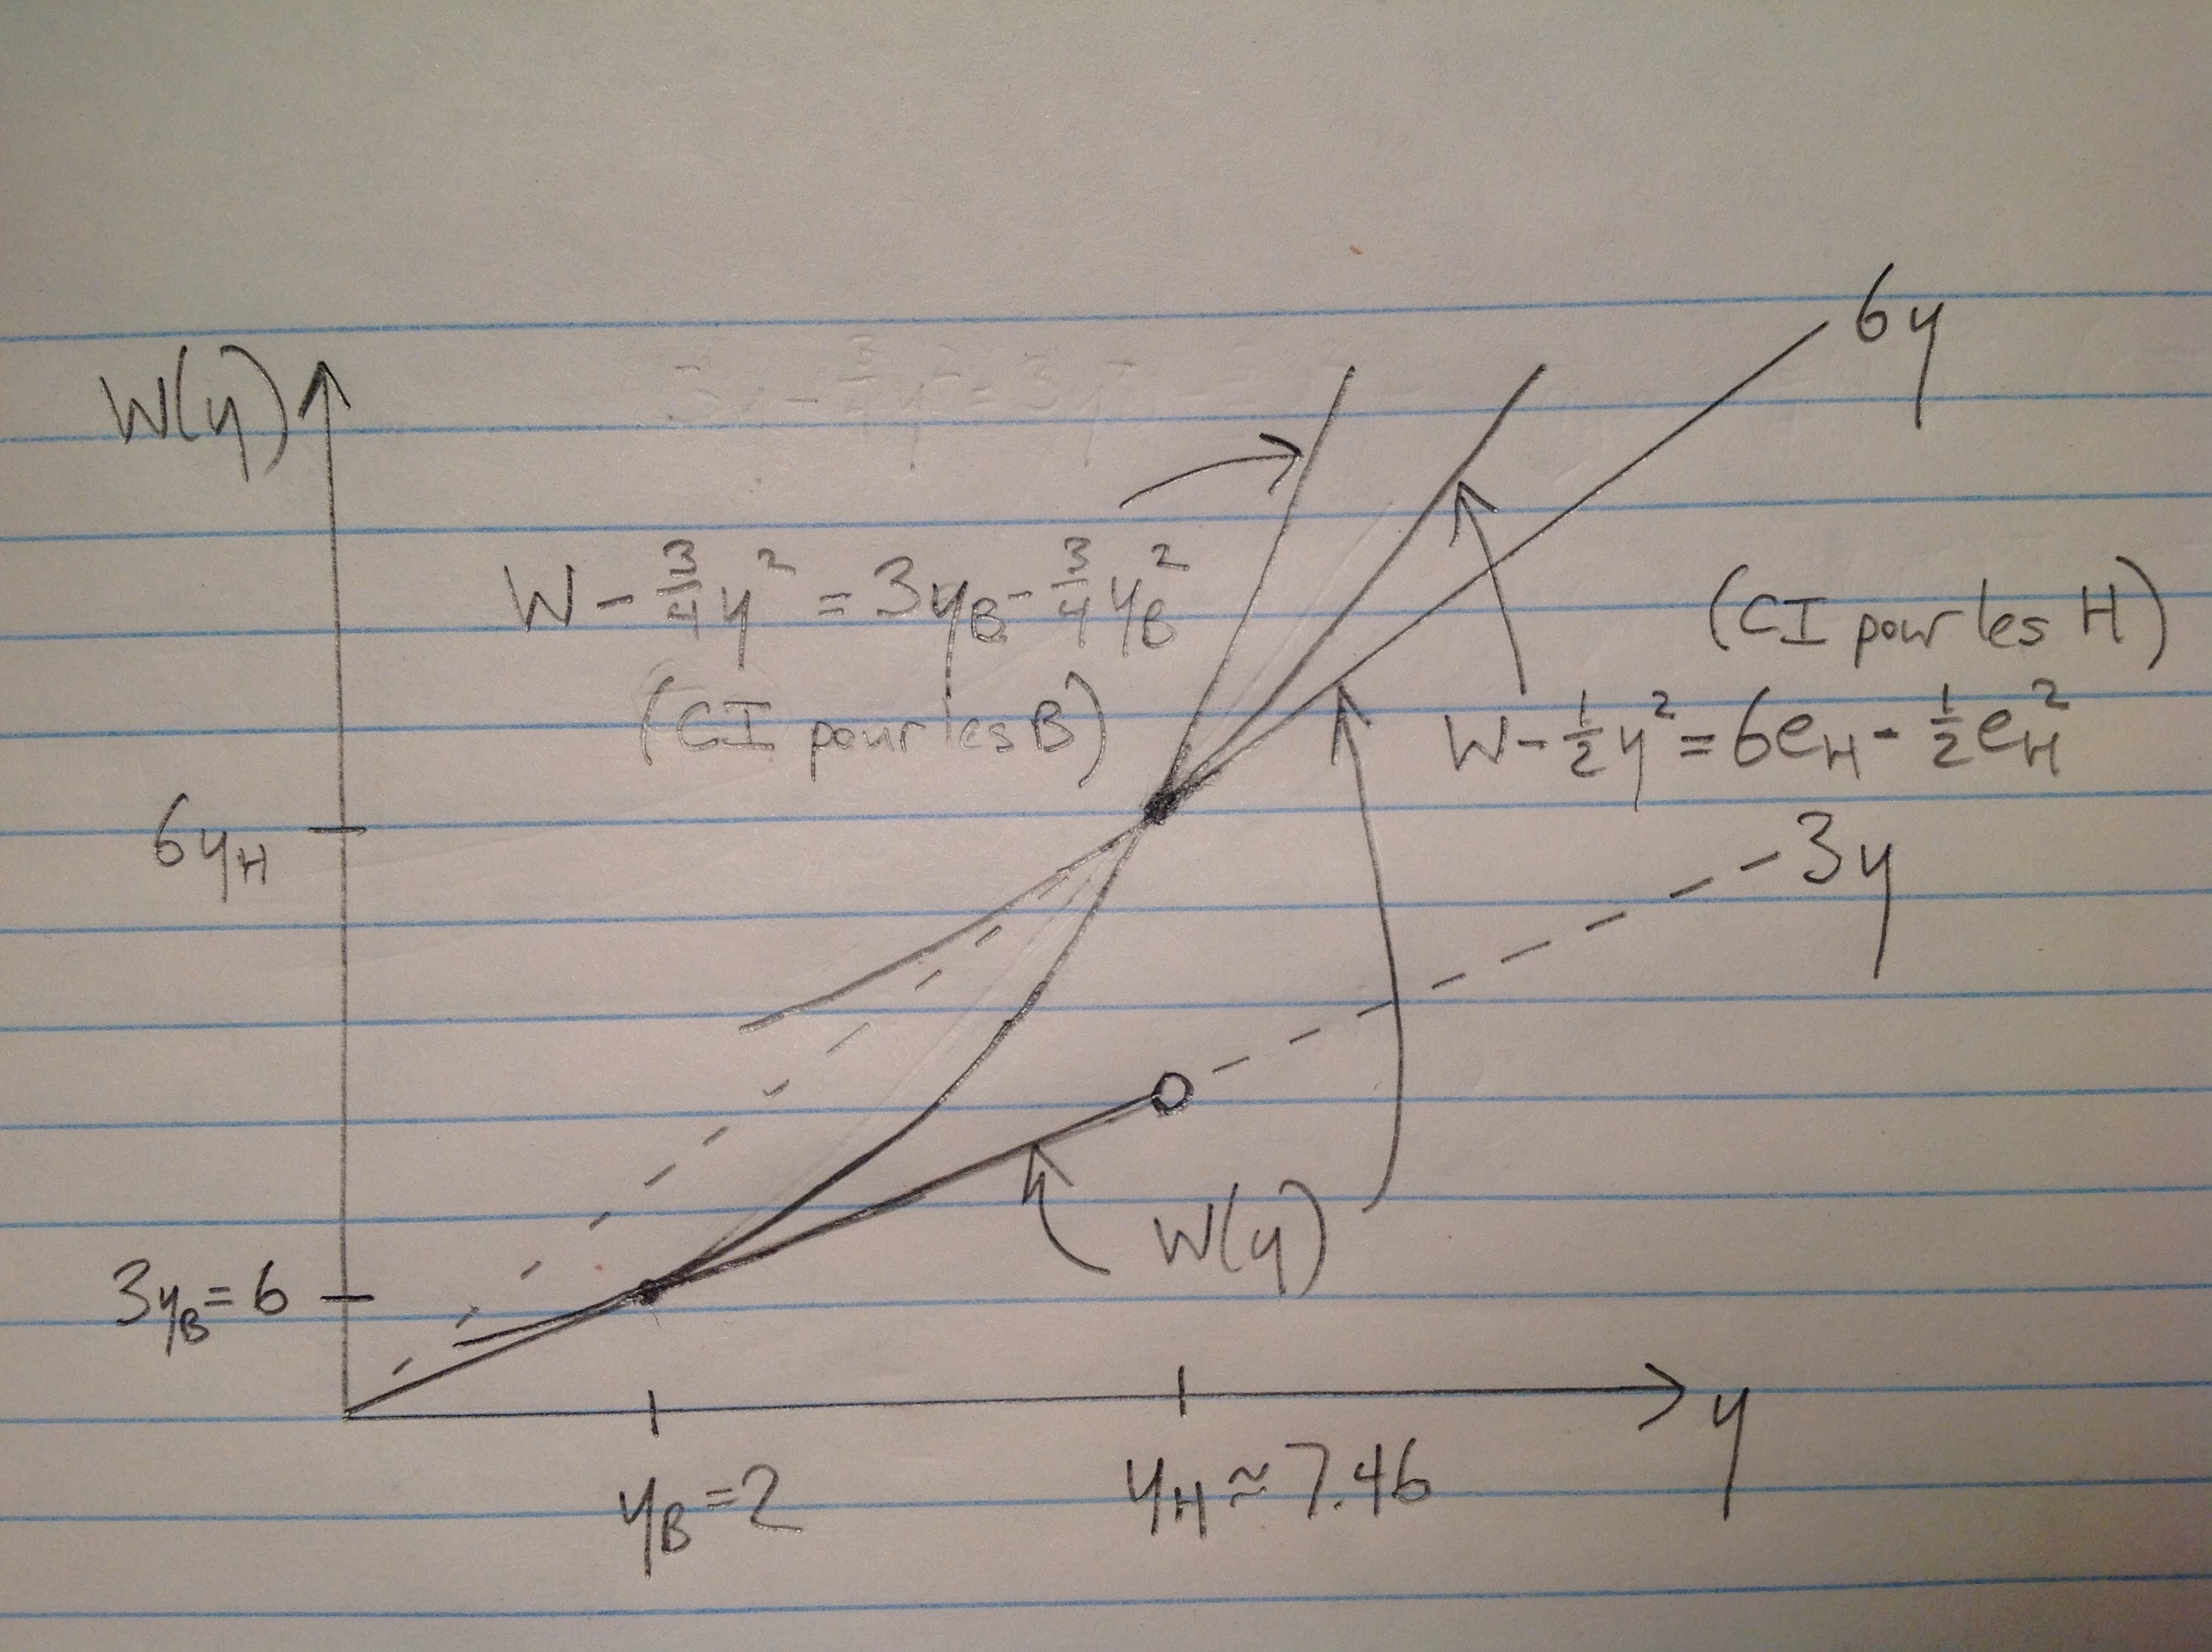 6y
W(y)
W - 3/4 y² = 3y_B - 3/4 y_B²
(CI pour les B)
(CI pour les H)
W - 1/2 y² = 6e_H - 1/2 e_H²
6y_H
3y
3y_B = 6
W(y)
y
y_B = 2
y_H ≈ 7.46